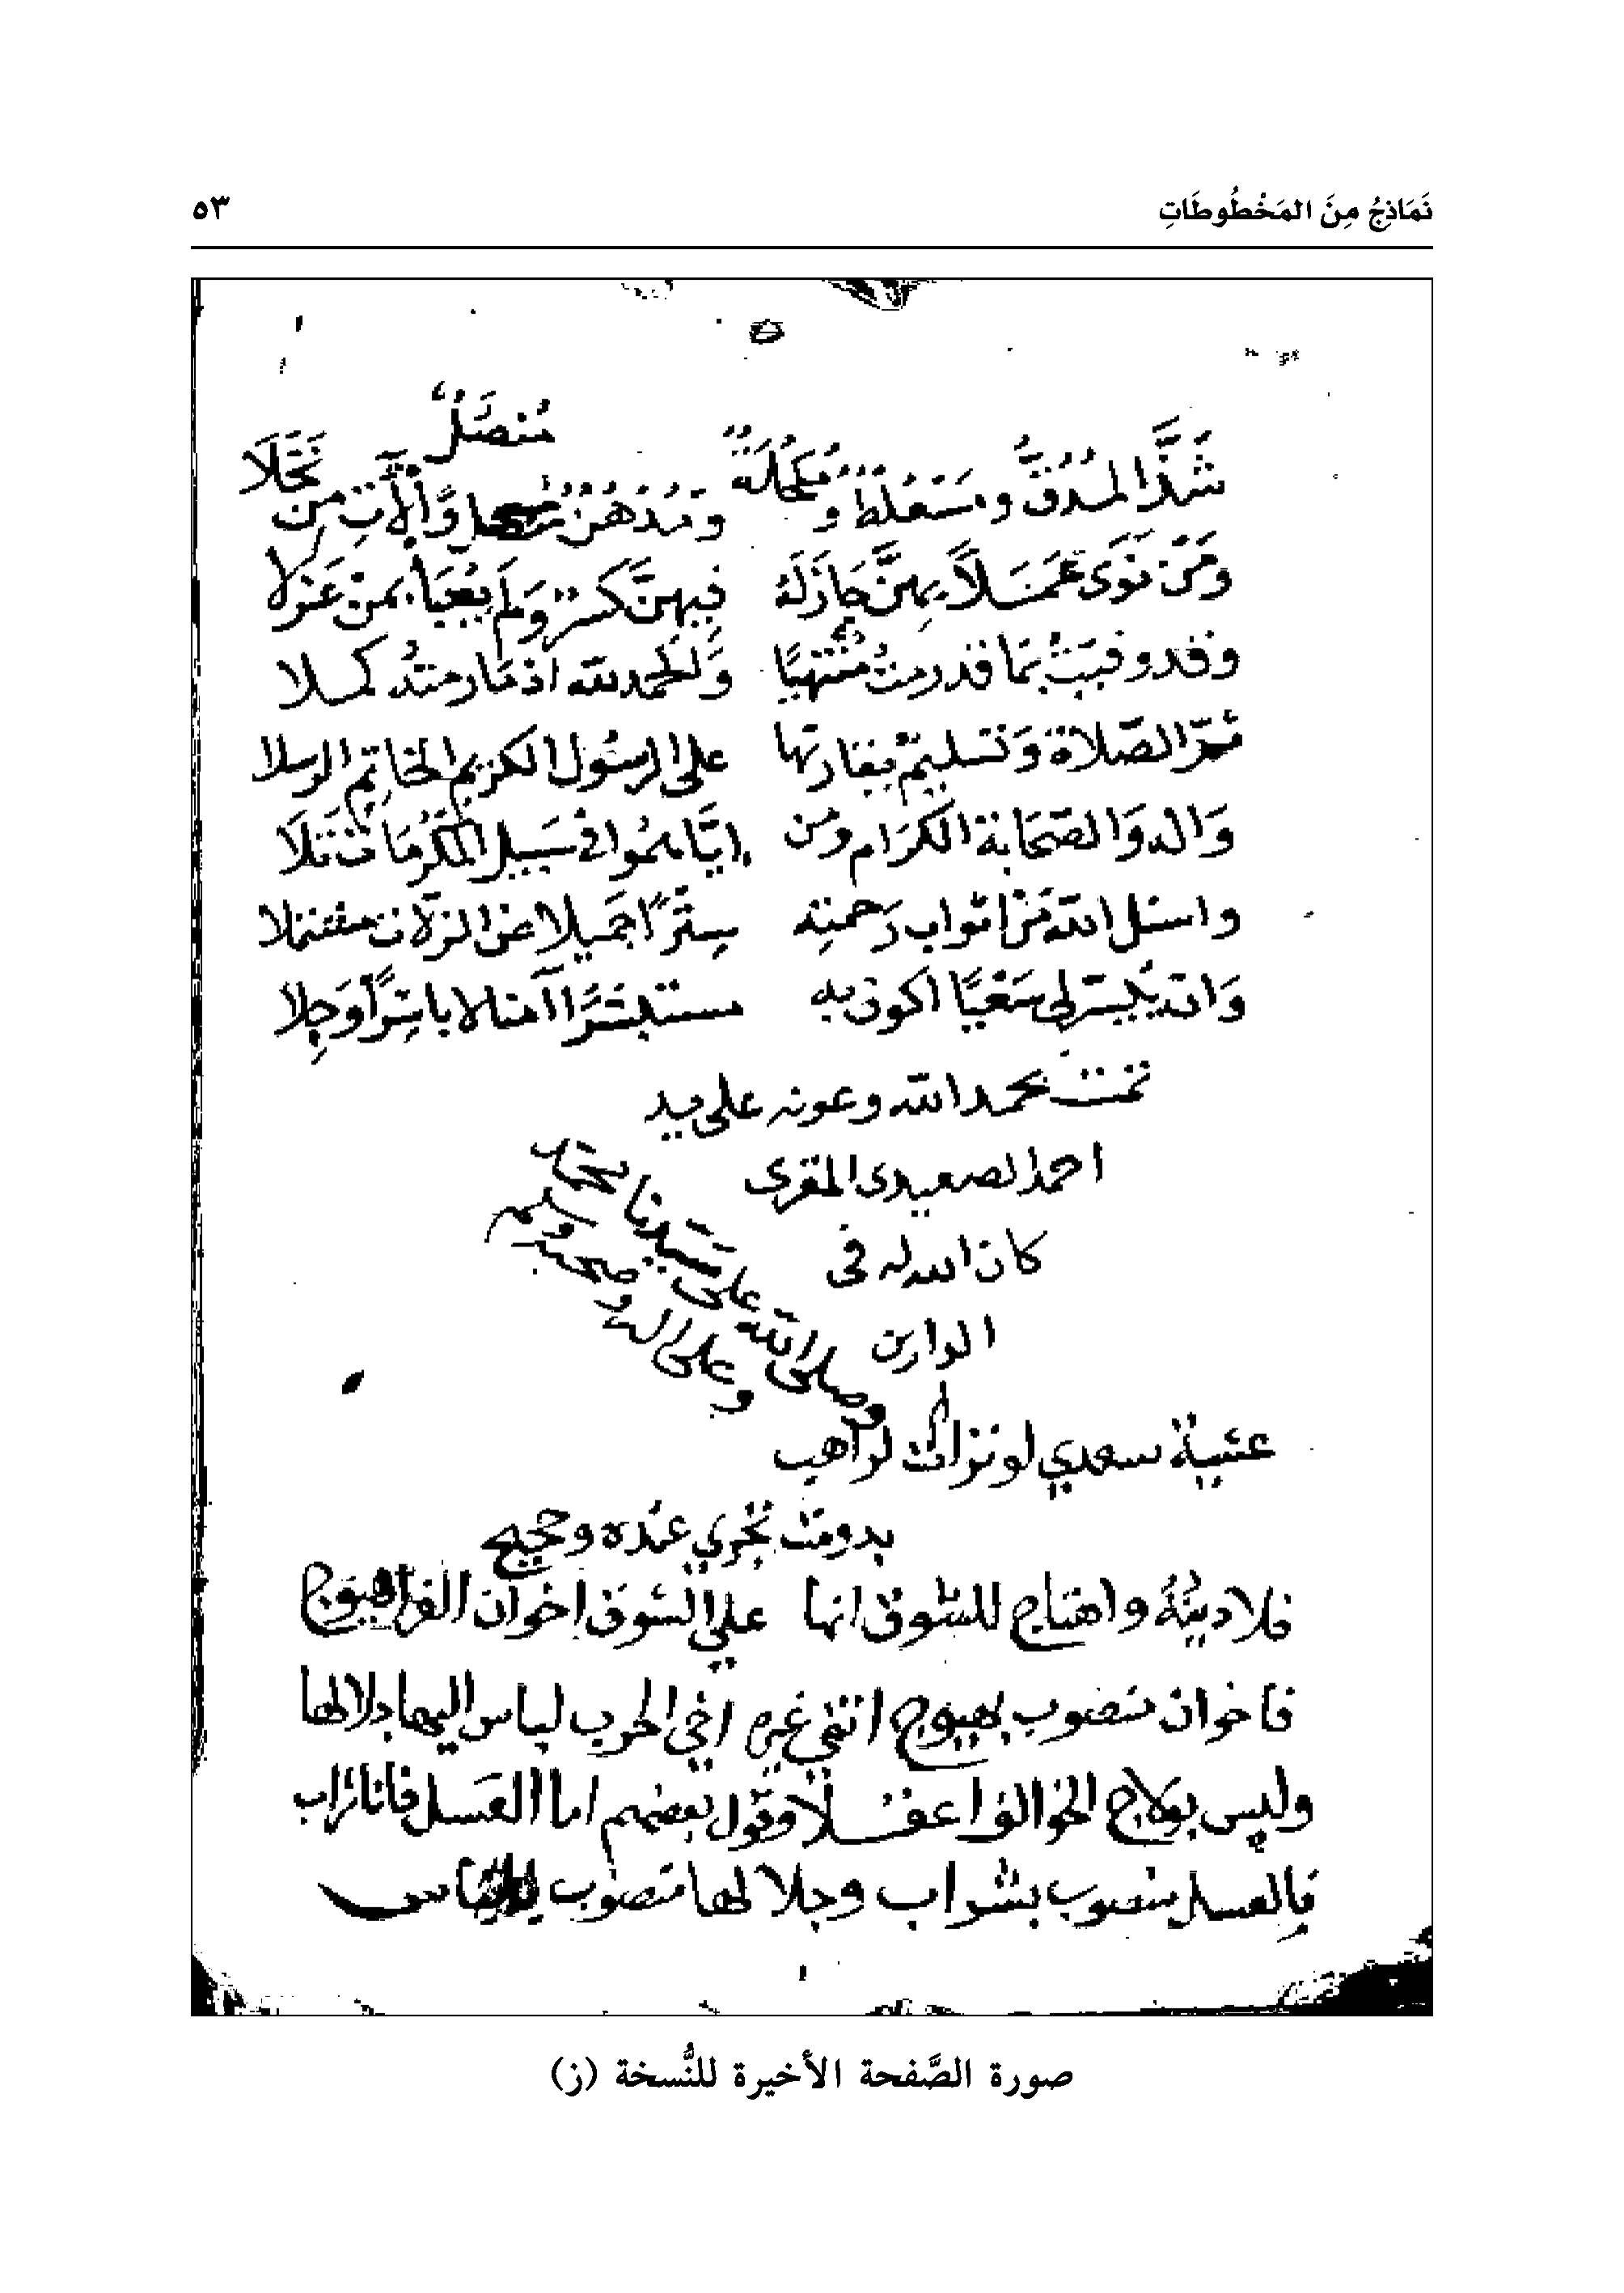 نَمَاذِجُ مِنَ المَخْطُوطَاتِ ٥٣
مُنصُلٌ
شَذَّ المُدُقُّ ومسْعُطٌ ومُكحُلَةٌ ومُدْهُنٌ وَالآتِ مِن نَخَلَا
ومَنْ نَوَى عَمَلاً بهنَّ جَازَ لَهُ فِيهنَّ كسْرٌ وَلم يُعْبَأ بمنْ عَزَلا
وقد وفيتُ بمَا قد رمتُ مُنتهيًا وَالحمد لله اذ مَا رمتُه كملا
ثمَّ الصّلاة وَتسليمٌ يقارنها على الرسُول الكريم الخاتِم الرسلا
وَاله وَالصّحَابة الكرَام ومَن ايّاهمُوا في سَبيل المكرُمَات تَلَا
واسئل الله مَن اثواب رَحمته سِتْرًا جَميلا على الزلّات مشتملا
وَان يُيسّر لي سَعْيًا اكون به مستبشرًا آمنا لا باسِرًا وَجِلا
تمت بحمد الله وعونه على يد
احمد الصعيدى المقرى
كان الله له فى
الدارين
وصلى الله على سَيّدنا محمّد
وعلى اله وصحبه وسلم
عشية سعدي لو تراات لراهب
بدومت تجري عنده وحجيج
قلا دينَهُ واهتاج للشوق انها علي الشوق اخوان العزا هيوج
فاخوان منصوب بهيوج اخي الحرب لباس اليها جلالها
وليس بولاج الخوالف اعقلا وقول بعضهم اما العسل فانا شراب
فالعسل منصوب بشراب وجلالها منصوب
صورة الصَّفحة الأخيرة للنُّسخة (ز)